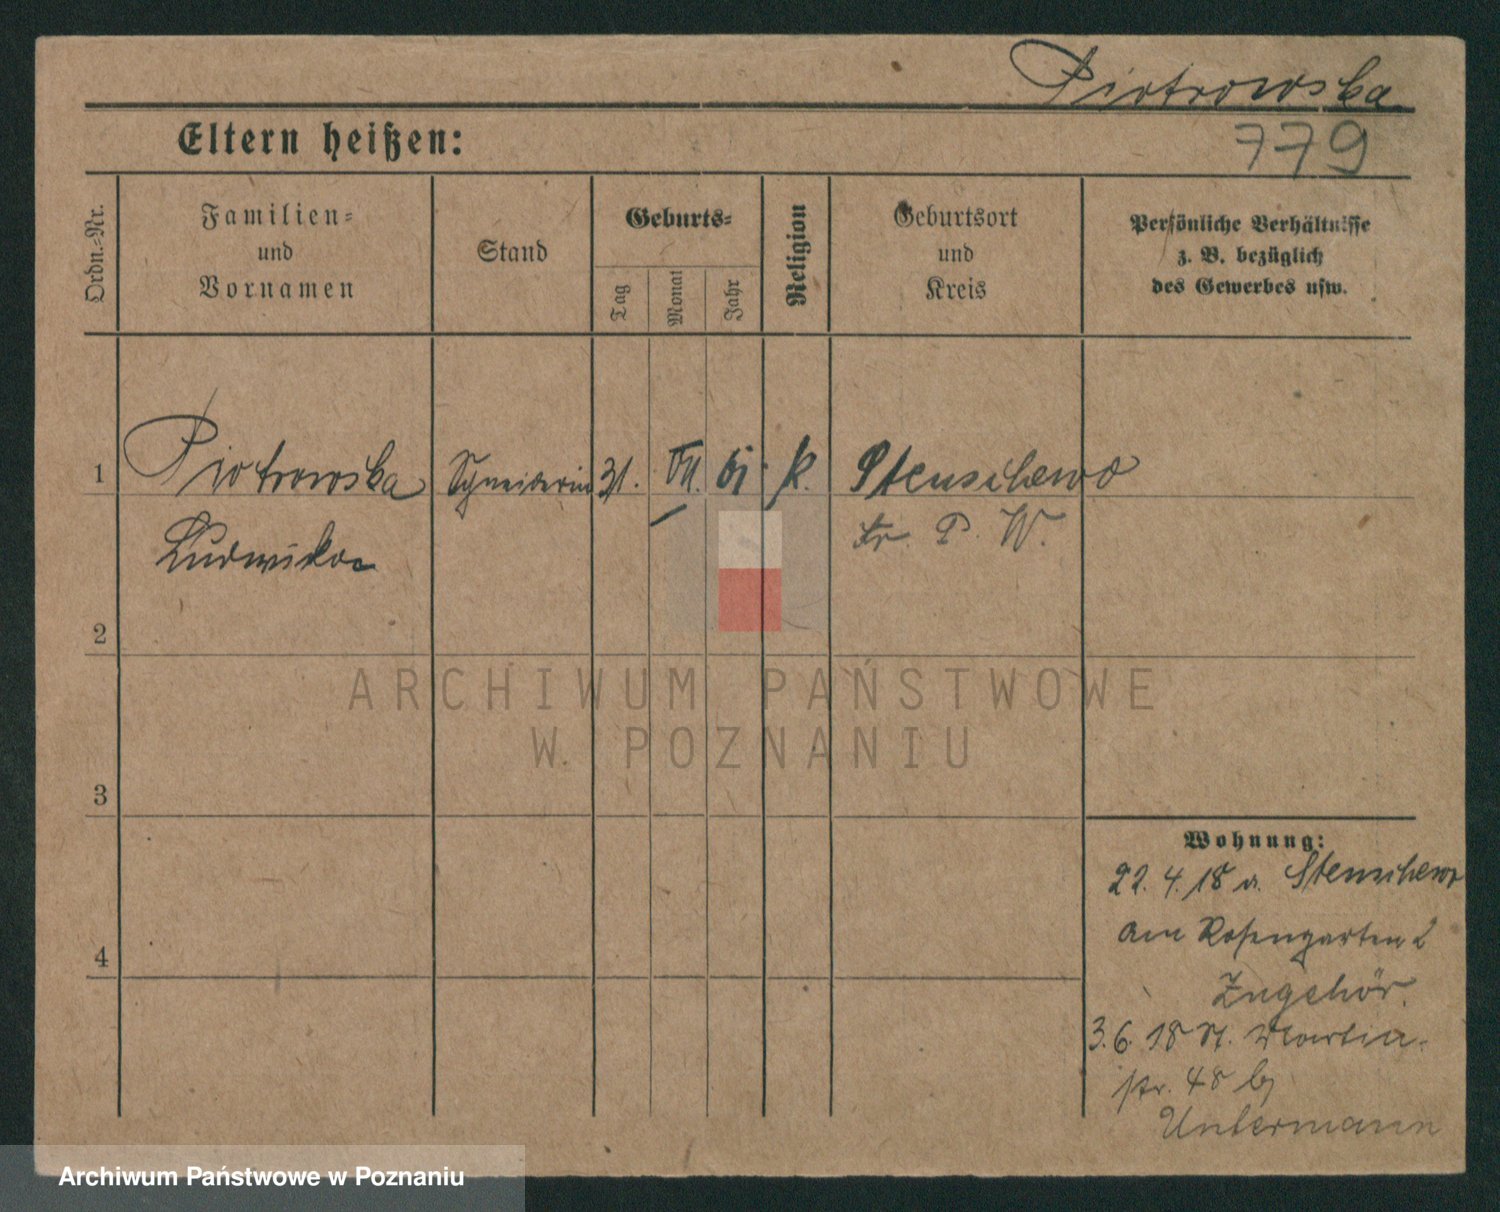 Piotrowska
779
Eltern heißen:
Ordn.-Nr.
Familien-
und
Vornamen
Stand
Geburts-
Tag
Monat
Jahr
Religion
Geburtsort
und
Kreis
Persönliche Verhältnisse
z. B. bezüglich
des Gewerbes usw.
1 Piotrowska Schneiderin 31. VII. k. Stenschewo
Ludwika Kr. P. W.
2
ARCHIWUM PAŃSTWOWE
W POZNANIU
3
Wohnung:
22. 4. 18 v. Stenschewo
am Rosengarten 2
4
Zugehör.
3. 6. 18 St. Martin-
str. 48 b/
Untermann
Archiwum Państwowe w Poznaniu